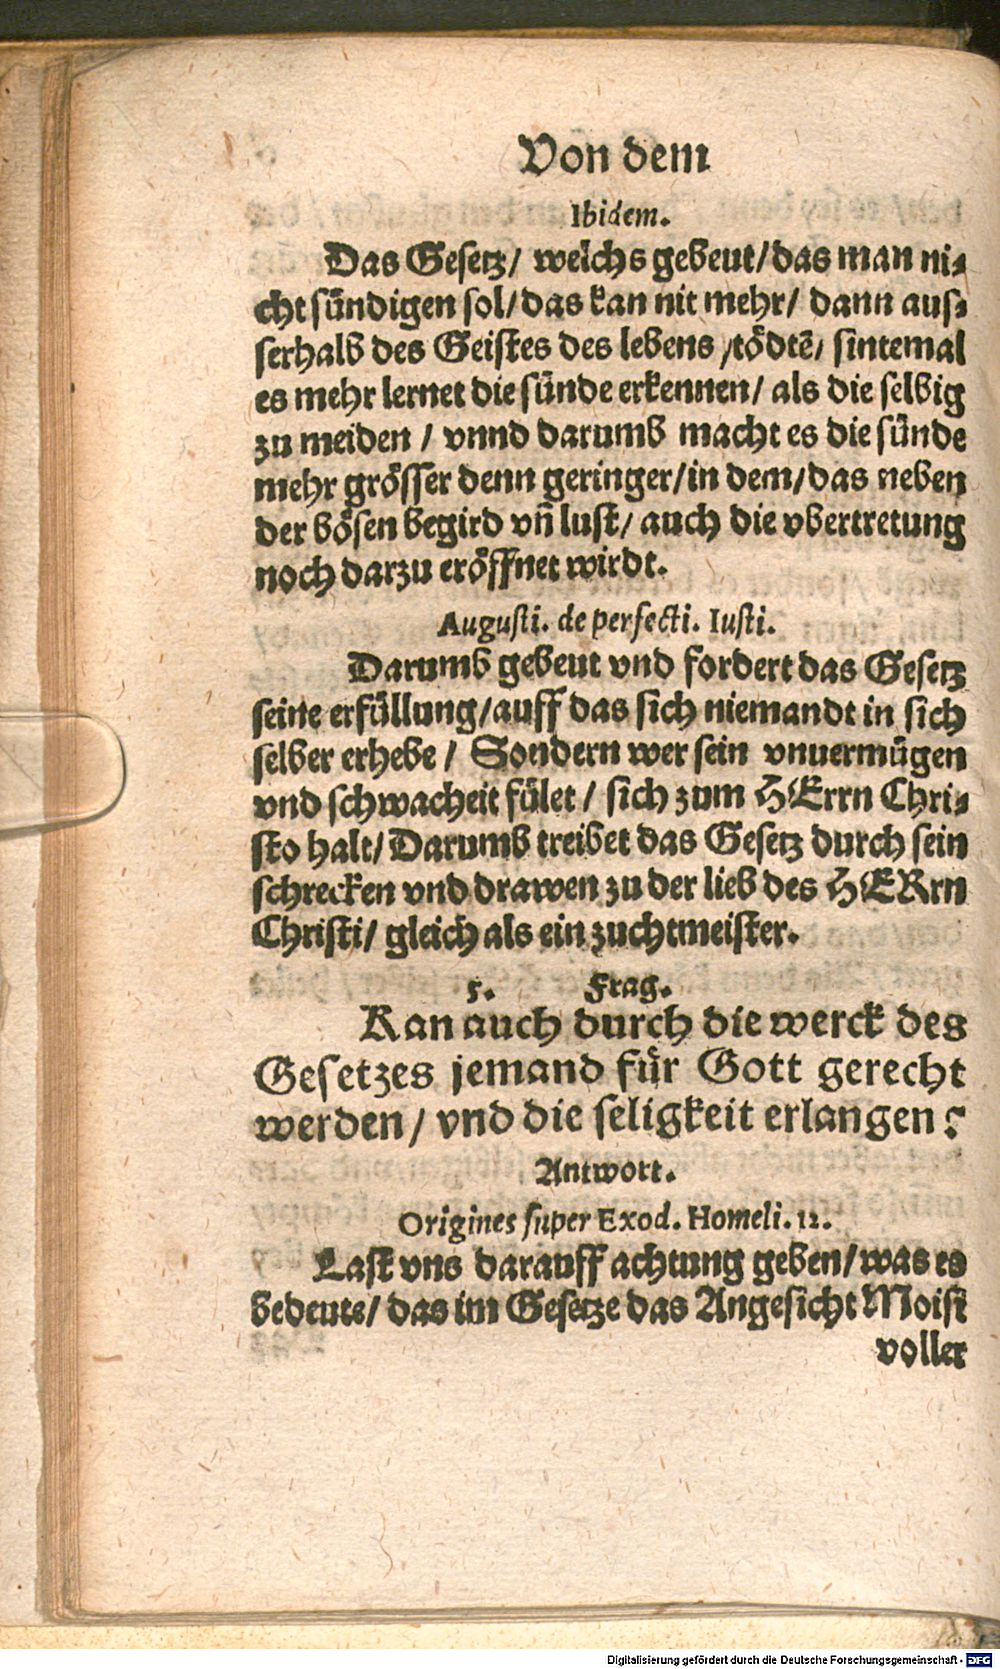 Von dem
Ibidem.
Das Gesetz/ welchs gebeut/das man ni⸗
cht sündigen sol/das kan nit mehr/ dann aus⸗
serhalb des Geistes des lebens /tödtē/ sintemal
es mehr lernet die sünde erkennen/ als die selbig
zu meiden / vnnd darumb macht es die sünde
mehr grösser denn geringer/in dem/das neben
der bösen begird vñ lust/ auch die vbertretung
noch darzu eröffnet wirdt.
Augusti. de perfecti. Iusti.
Darumb gebeut vnd fordert das Gesetz
seine erfüllung/auff das sich niemandt in sich
selber erhebe / Sondern wer sein vnuermügen
vnd schwacheit fület / sich zum HErrn Chri⸗
sto halt/ Darumb treibet das Gesetz durch sein
schrecken vnd drawen zu der lieb des HERrn
Christi/ gleich als ein zuchtmeister.
5. Frag.
Kan auch durch die werck des
Gesetzes jemand für Gott gerecht
werden/ vnd die seligkeit erlangen?
Antwort.
Origines super Exod. Homeli. 12.
Last vns darauff achtung geben/was es
bedeute/ das im Gesetze das Angesicht Moisi
voller
Digitalisierung gefördert durch die Deutsche Forschungsgemeinschaft - DFG